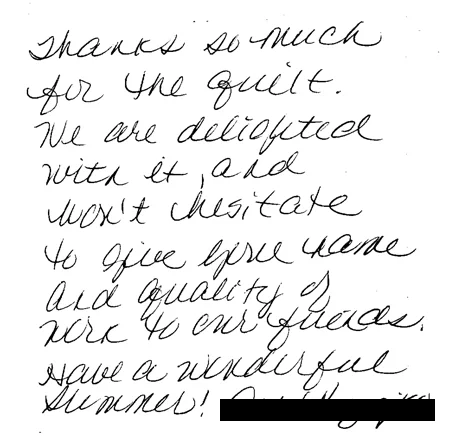 Thanks so much
for the quilt.
We are delighted
with it, and
won't hesitate
to give your name
and quality of
work to our friends.
Have a wonderful
Summer!